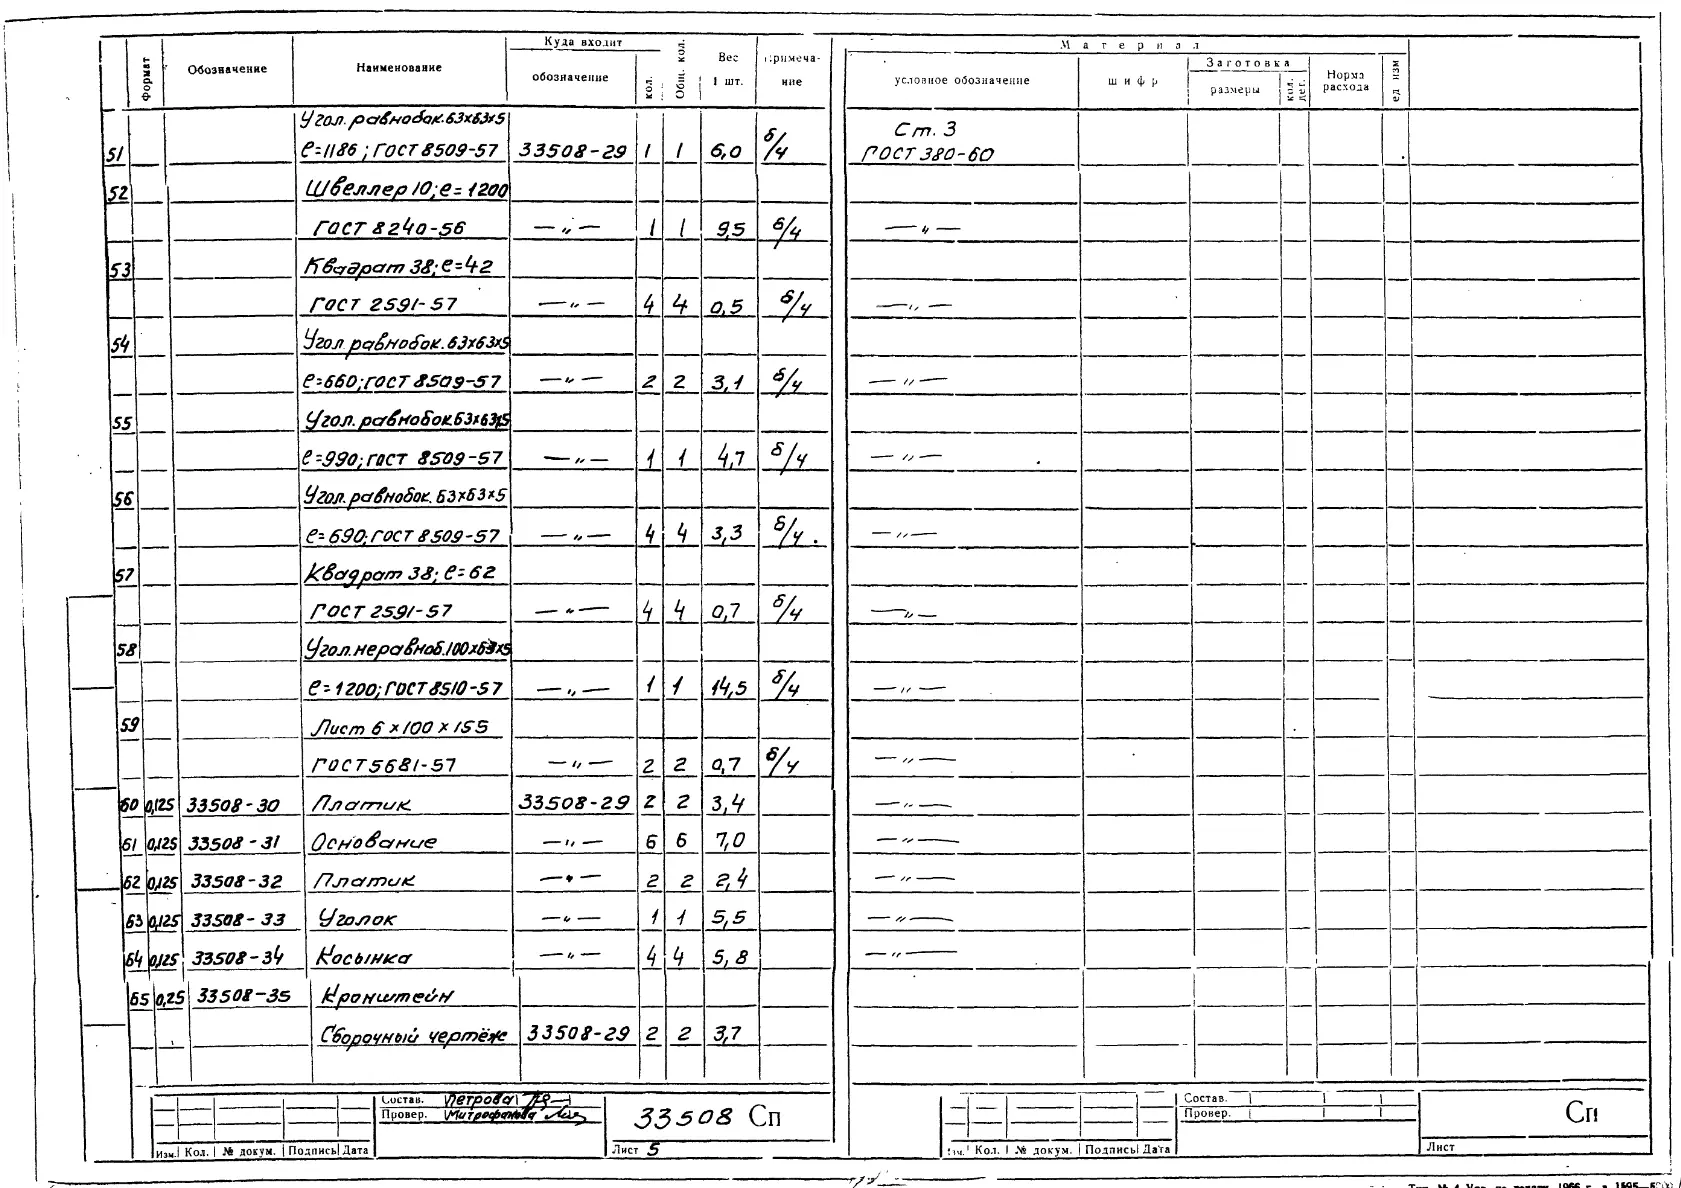 Формат Обозначение Наименование Куда входит обозначение кол. Общ. кол. Вес 1 шт. Примечание
Материал условное обозначение шифр Заготовка размеры кол. дет. Норма расхода ед изм
Угол. равнобок. 63х63х5 Ст. 3
51 ℓ=1186; ГОСТ 8509-57 33508-29 1 1 6,0 б/ч ГОСТ 380-60
52 Швеллер 10; ℓ=1200
ГОСТ 8240-56 —"— 1 1 9,5 б/ч —"—
53 Квадрат 38; ℓ=42
ГОСТ 2591-57 —"— 4 4 0,5 б/ч —"—
54 Угол. равнобок. 63х63х5
ℓ=660; ГОСТ 8509-57 —"— 2 2 3,1 б/ч —"—
55 Угол. равнобок. 63х63х5
ℓ=990; ГОСТ 8509-57 —"— 1 1 4,7 б/ч —"—
56 Угол. равнобок. 63х63х5
ℓ=690; ГОСТ 8509-57 —"— 4 4 3,3 б/ч. —"—
57 Квадрат 38; ℓ=62
ГОСТ 2591-57 —"— 4 4 0,7 б/ч —"—
58 Угол. неравноб. 100х63х5
ℓ=1200; ГОСТ 8510-57 —"— 1 1 14,5 б/ч —"—
59 Лист 6х100х155
ГОСТ 5681-57 —"— 2 2 0,7 б/ч —"—
60 0,125 33508-30 Платик 33508-29 2 2 3,4 —"—
61 0,125 33508-31 Основание —"— 6 6 7,0 —"—
62 0,125 33508-32 Платик —"— 2 2 2,4 —"—
63 0,125 33508-33 Уголок —"— 1 1 5,5 —"—
64 0,125 33508-34 Косынка —"— 4 4 5,8 —"—
65 0,25 33508-35 Кронштейн
Сборочный чертёж 33508-29 2 2 3,7
Состав. Петрова
Провер. Митрофанова
33508 Сп
Изм. Кол. № докум. Подпись Дата Лист 5
Состав.
Провер.
Сп
Кол. № докум. Подпись Дата Лист